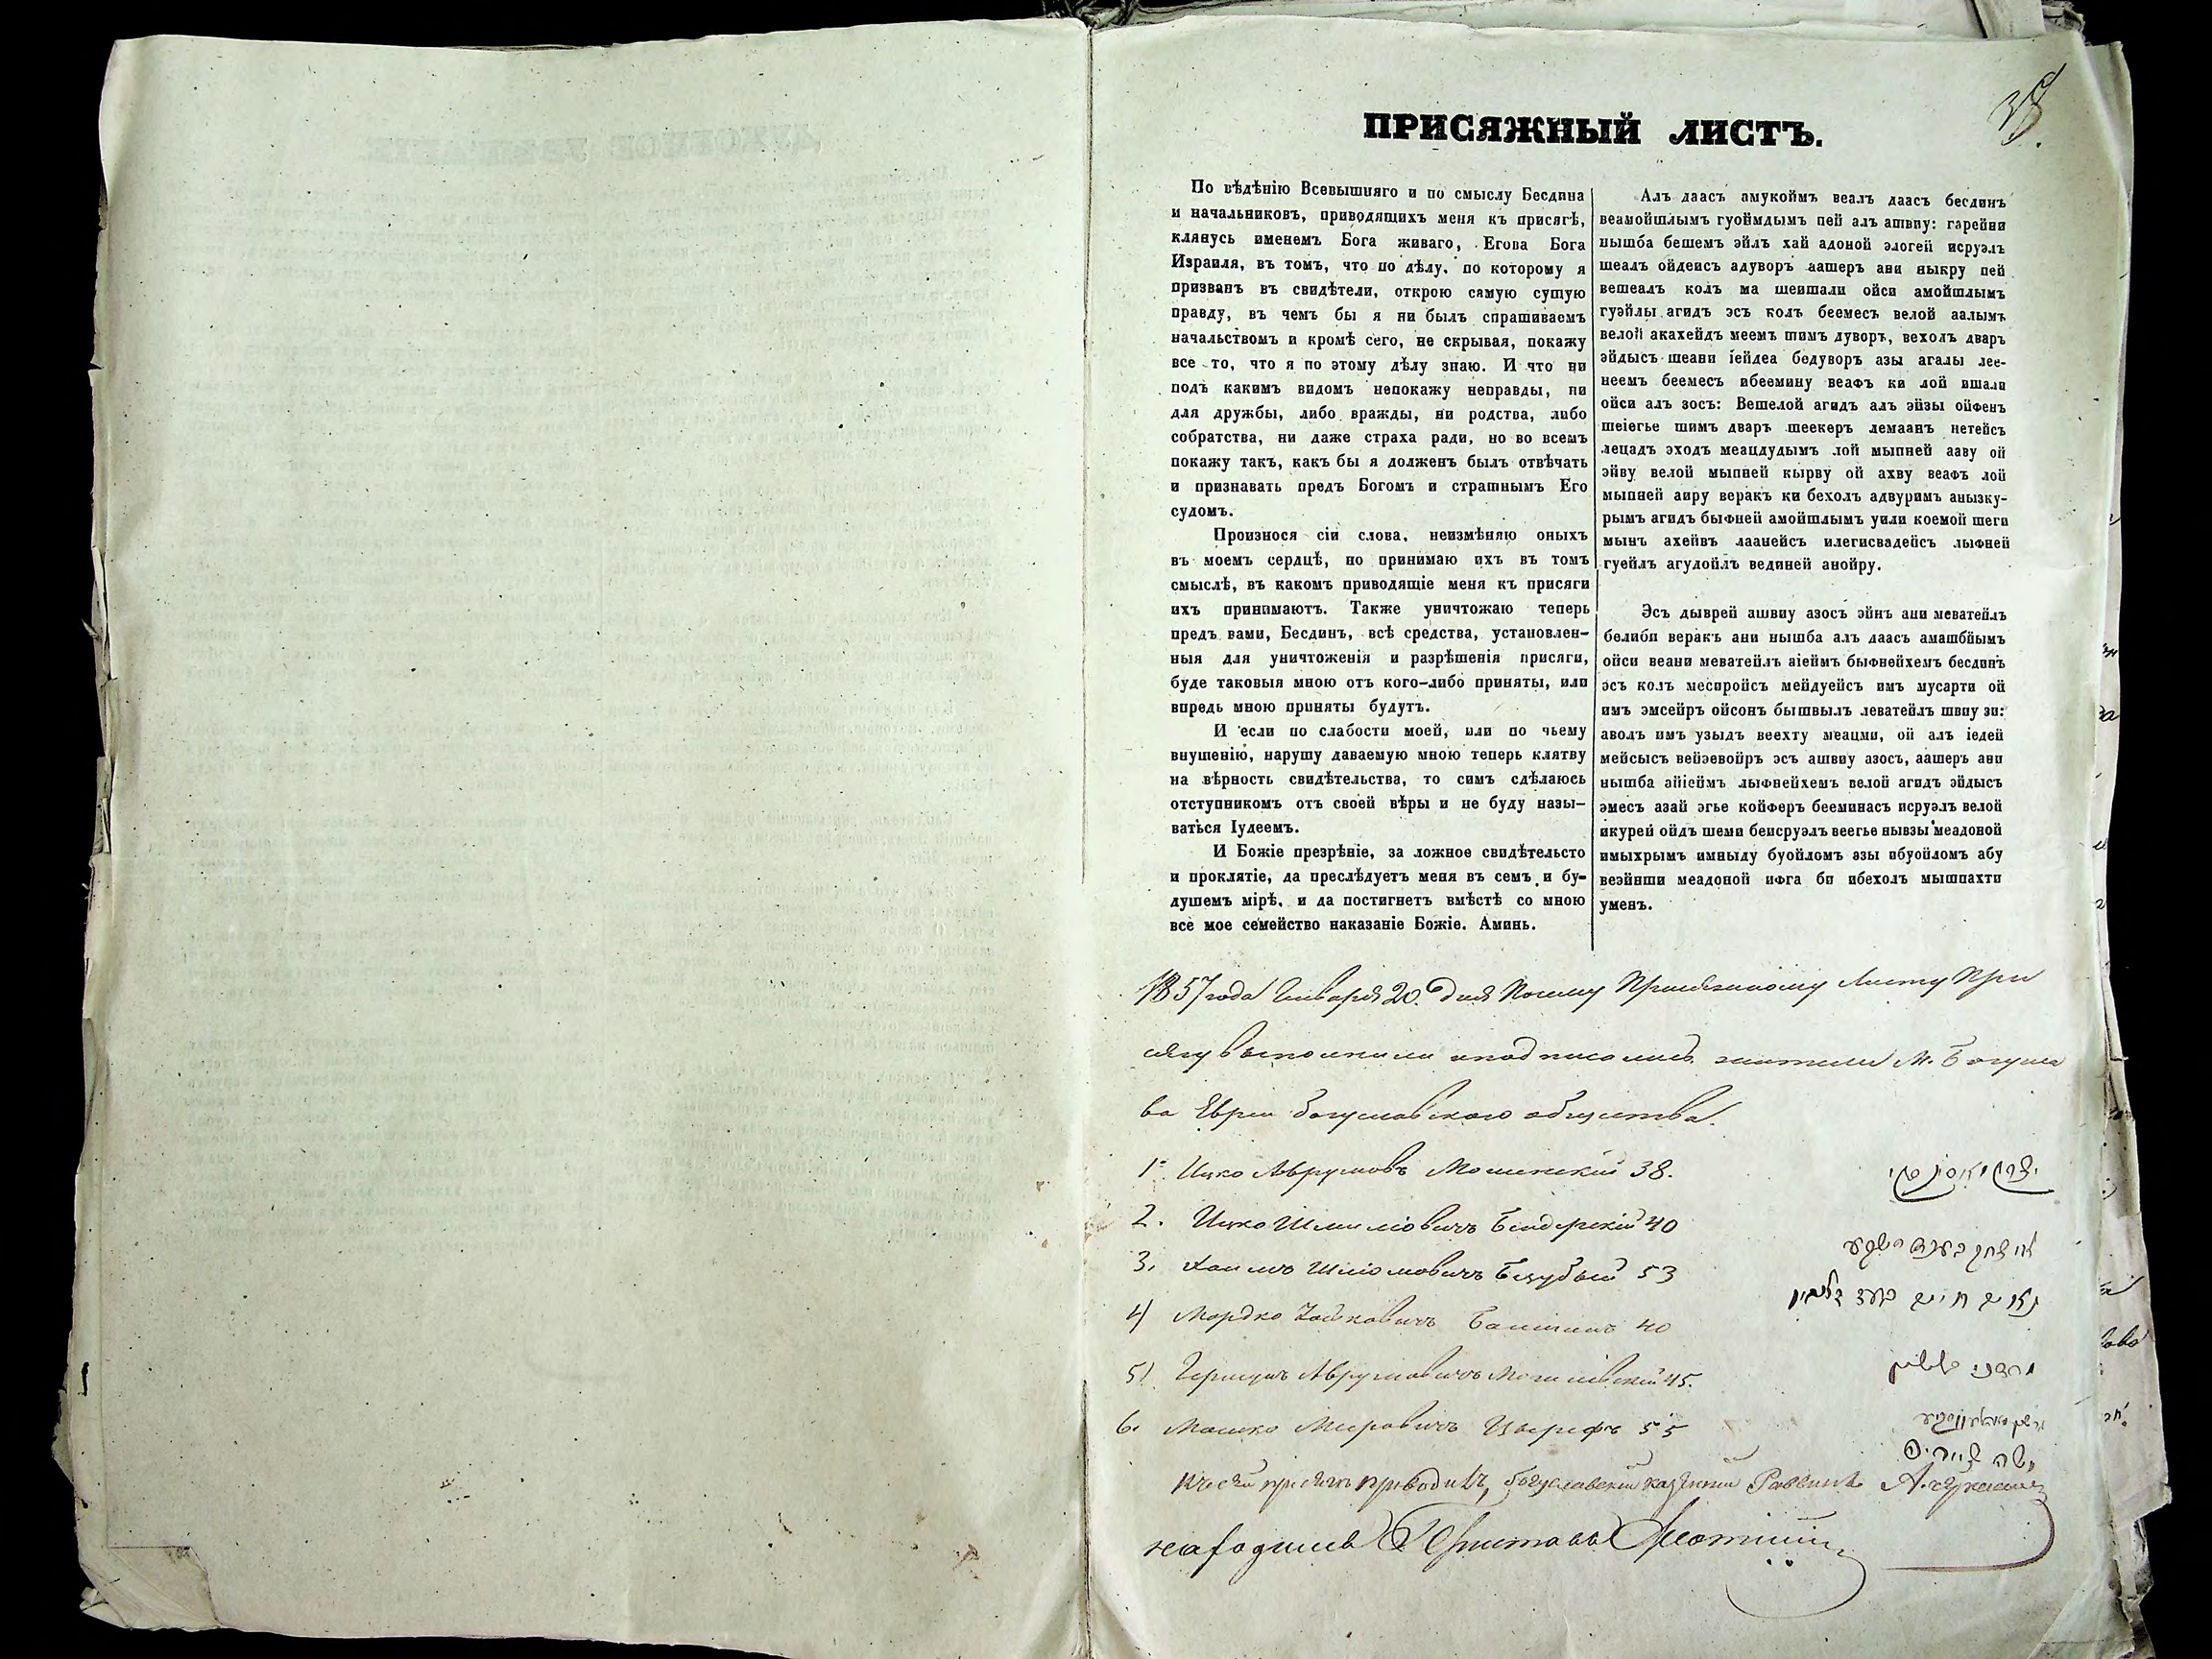 38.
ПРИСЯЖНЫЙ ЛИСТЪ.
По вѣдѣнію Всевышняго и по смыслу Бесдина
и начальниковъ, приводящихъ меня къ присягѣ,
клянусь именемъ Бога живаго, Егова Бога
Израиля, въ томъ, что по дѣлу, по которому я
призванъ въ свидѣтели, открою самую сущую
правду, въ чемъ бы я ни былъ спрашиваемъ
начальствомъ и кромѣ сего, не скрывая, покажу
все то, что я по этому дѣлу знаю. И что ни
подъ какимъ видомъ непокажу неправды, ни
для дружбы, либо вражды, ни родства, либо
собратства, ни даже страха ради, но во всемъ
покажу такъ, какъ бы я долженъ былъ отвѣчать
и признавать предъ Богомъ и страшнымъ Его
судомъ.
Произнося сіи слова, неизмѣняю оныхъ
въ моемъ сердцѣ, но принимаю ихъ въ томъ
смыслѣ, въ какомъ приводящіе меня къ присяги
ихъ принимаютъ. Также уничтожаю теперь
предъ вами, Бесдинъ, всѣ средства, установлен-
ныя для уничтоженія и разрѣшенія присяги,
буде таковыя мною отъ кого-либо приняты, или
впредь мною приняты будутъ.
И если по слабости моей, или по чьему
внушенію, нарушу даваемую мною теперь клятву
на вѣрность свидѣтельства, то симъ сдѣлаюсь
отступникомъ отъ своей вѣры и не буду назы-
ваться Іудеемъ.
И Божіе презрѣніе, за ложное свидѣтельсто
и проклятіе, да преслѣдуетъ меня въ семъ и бу-
душемъ мірѣ, и да постигнетъ вмѣстѣ со мною
все мое семейство наказаніе Божіе. Аминь.
Алъ даасъ амукоймъ веалъ даасъ бесдинъ
веамойшлымъ гуоймдымъ пей алъ ашвиу: гарейни
нышба бешемъ эйлъ хай адоной элогей исруэлъ
шеалъ ойдеисъ адуворъ аашеръ ани ныкру пей
вешеалъ колъ ма шеишали ойси амойшлымъ
гуэйлы агидъ эсъ колъ беемесъ велой аалымъ
велой акахейдъ меемъ шимъ дуворъ, вехолъ дваръ
эйдысъ шеани іейдеа бедуворъ азы агалы лее-
неемъ беемесъ ибеемину веафъ ки лой ишали
ойси алъ зосъ: Вешелой агидъ алъ эйзы ойфенъ
шеіегье шимъ дваръ шеекеръ лемаанъ нетейсъ
лецадъ эходъ меацдудымъ лой мыпней ааву ой
эйву велой мыпней кырву ой ахву веафъ лой
мыпней аиру веракъ ки бехолъ адвуримъ анызку-
рымъ агидъ быфней амойшлымъ уили коемой шеги
мынъ ахейвъ лаанейсъ илегисвадейсъ лыфней
гуейлъ агудойлъ вединей анойру.
Эсъ дыврей ашвиу азосъ эйнъ ани меватейлъ
белиби веракъ ани нышба алъ даасъ амашбйымъ
ойси веани меватейлъ аіеймъ быфнейхемъ бесдинъ
эсъ колъ месиройсъ мейдуейсъ имъ мусарти ой
имъ эмсейръ ойсонъ бышвылъ леватейлъ швиу зи:
аволъ имъ узыдъ веехту меацми, ой алъ іедей
мейсысъ вейэевойръ эсъ ашвиу азосъ, аашеръ ани
нышба айіеймъ лыфнейхемъ велой агидъ эйдысъ
эмесъ азай эгье койферъ бееминасъ исруэлъ велой
икурей ойдъ шеми беисруэлъ веегье нывзы меадоной
имыхрымъ имныду буойломъ азы ибуойломъ абу
веэйнши меадоной ифга би ибехолъ мышпахти
уменъ.
1857 года Января 20. дня Посему Присяжному Листу При
сягу выполнили иподписались жители М. Богусла
ва Евреи богуславского общества.
1. Ицко Аврумовъ 38.
2. Ицко Бендерскій 40
3. Хаимъ Шліомовичъ 53
4) Мордко 40
5) Аврумовичъ 45.
6. Мошко Мееровичъ 55
Къ сей присягѣ приводилъ, богуславскій казенный Раввинъ А.